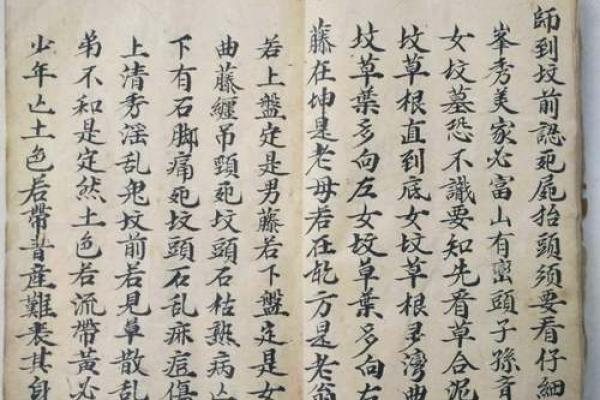 師到坟前認死屍抬頭須要看仔細
峯秀美家必富山有巒頭子孫
女坟墓恐不識要知先看草合泥
坟草根直到底女坟草根多湾曲
坟草葉多向左女坟草葉多向右
藤在坤是老母若在乾方是老翁
若上盤定是男藤若下盤定是女
曲藤纏吊頸死坟頭石枯熟病亡
下有石脚痛死坟頭石乱痳痘傷
上清秀滛乱鬼坟前若見草散乱
弟不和是定然土色若流帶黃必
少年亡土色若帶青産難喪其身